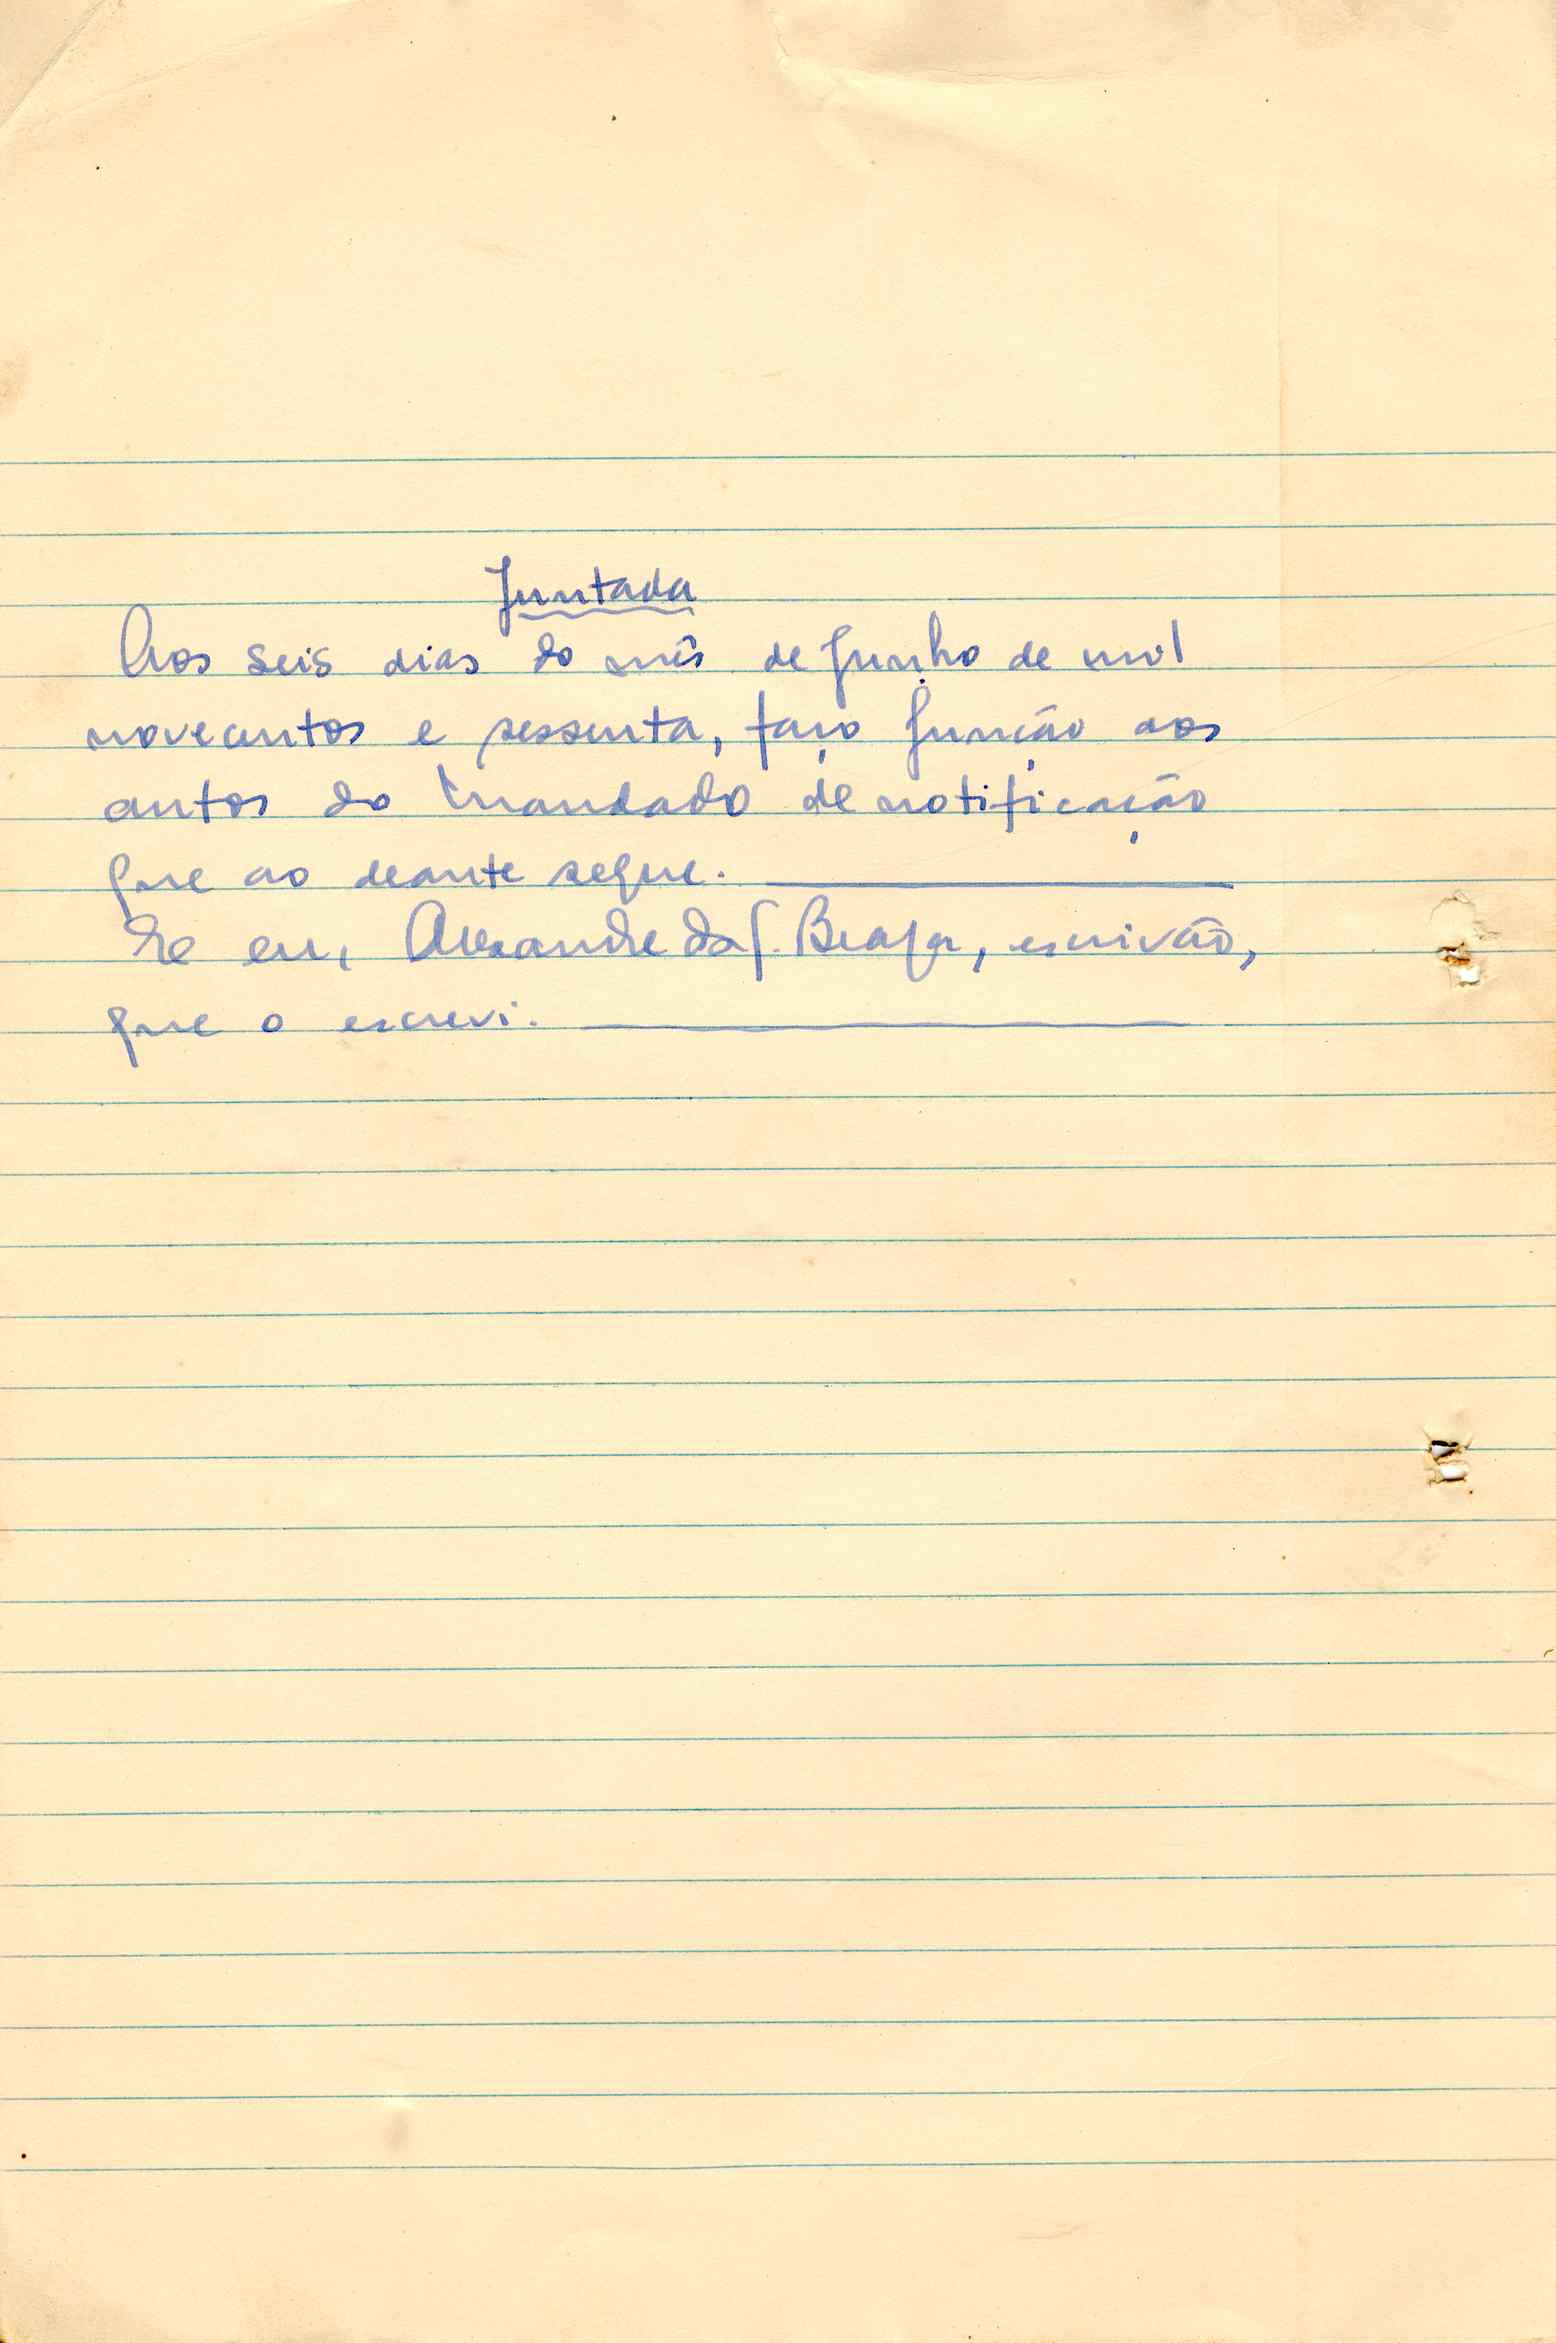 Juntada
Aos seis dias do mês de Junho de mil
novecentos e sessenta, faço junção aos
autos do mandado de notificação
que ao deante segue.
Eu eu, Alexandre da S. Braga, escrivão,
que o escrevi.